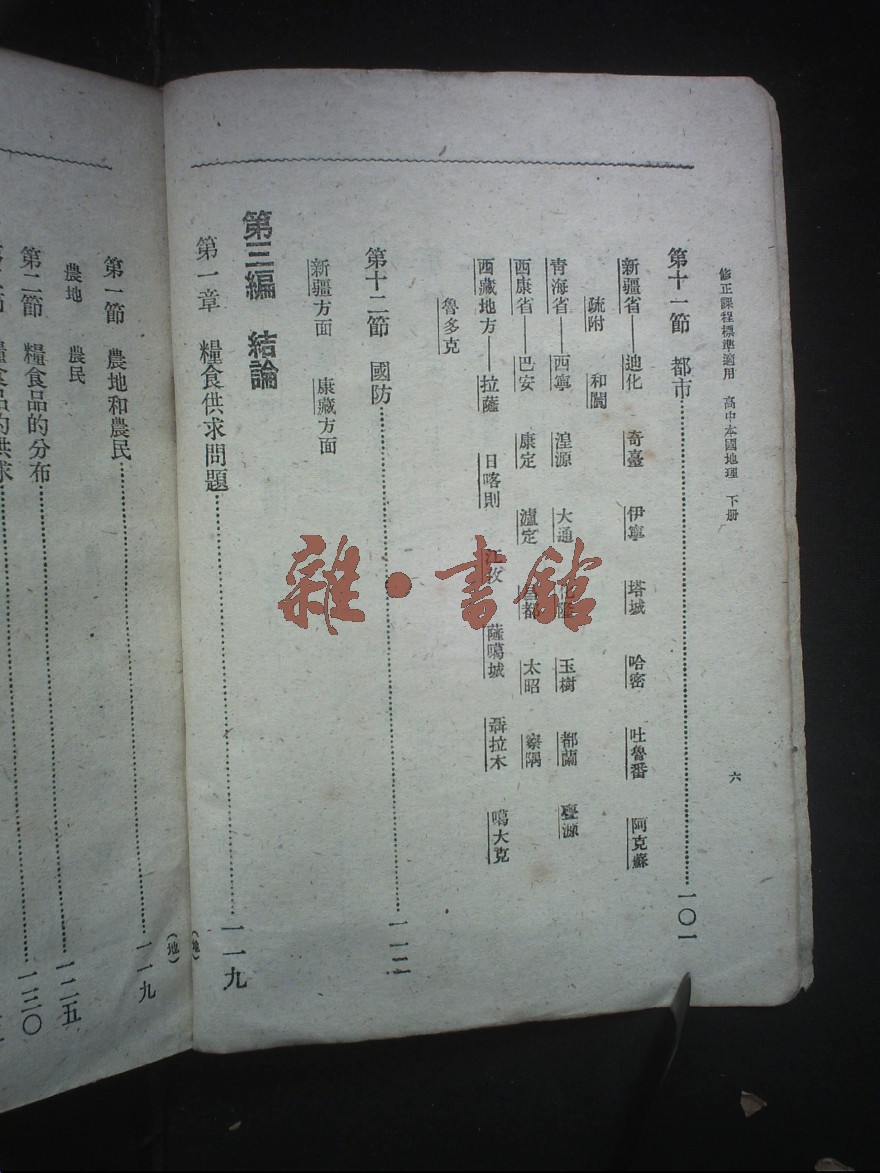 修正課程標準適用 高中本國地理 下册
六
第十一節 都市 一〇一
新疆省——迪化 奇臺 伊寧 塔城 哈密 吐魯番 阿克蘇
疏附 和闐
青海省——西寧 湟源 大通 玉樹 都蘭 亹源
西康省——巴安 康定 瀘定 昌都 太昭 察隅
西藏地方——拉薩 日喀則 江孜 薩噶城 聶拉木 噶大克
魯多克
第十二節 國防 一一二
新疆方面 康藏方面
第三編 結論
第一章 糧食供求問題 一一九
(地)
第一節 農地和農民 一一九
(地)
農地 農民
一二五
第二節 糧食品的分布 一三〇
糧食品的供求
雜·書館